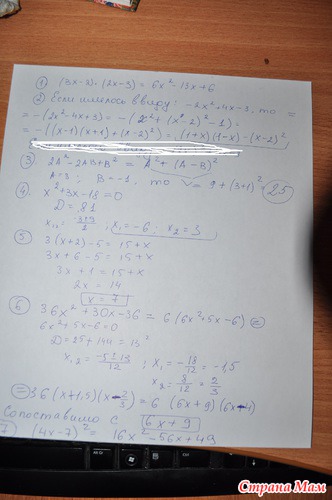 ① (3x-2)·(2x-3) = 6x²-13x+6
② Если имелось ввиду: -2x²+4x-3, то =
= -(2x²-4x+3) = -(x²+(x-2)²-1) =
= -((x-1)(x+1)+(x-2)²) = (1+x)(1-x)-(x-2)²
③ 2A²-2AB+B² = A²+(A-B)²
A=3; B=-1, то V= 9+(3+1)²=25
④ x²+3x-18=0
D=81
x₁,₂ = (-3±9)/2, x₁=-6; x₂=3
⑤ 3(x+2)-5=15+x
3x+6-5=15+x
3x+1=15+x
2x=14
x=7
⑥ 36x²+30x-36 = 6(6x²+5x-6) =
6x²+5x-6=0
D=25+144=13²
x₁,₂ = (-5±13)/12; x₁=-18/12=-1,5
x₂=8/12=2/3
= 36(x+1,5)(x-2/3) = 6(6x+9)(6x-4)
Сопоставимо с 6x+9
7) (4x-7)² = 16x²-56x+49
Страна Мам